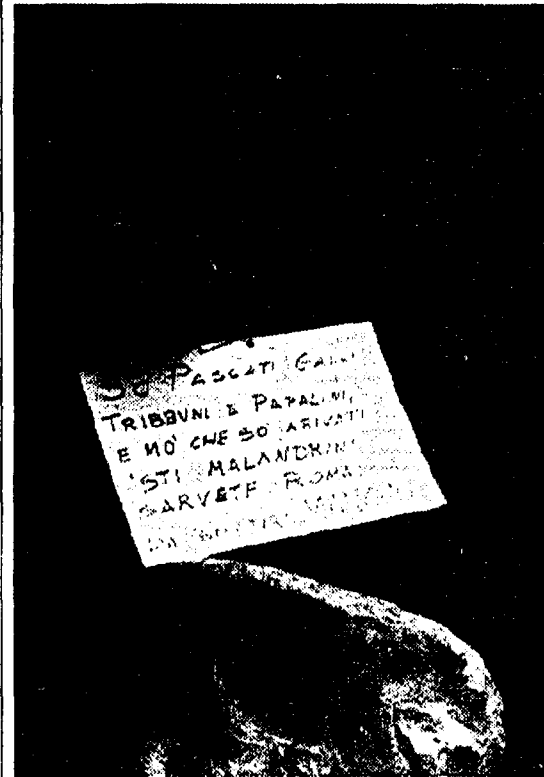 SO' PASSATI GALLI
TRIBBUNI E PAPALINI,
E MO' CHE SO' ARIVATI
'STI MALANDRINI
SARVETE ROMA
DA